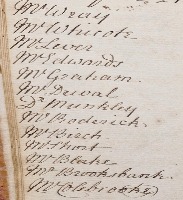 Mr Wray
Mr Whicote
Mr Lever
Mr Edwards
Mr Graham.
Mr Duval
Dr Munkley
Mr Roderick.
Mr Birch
Mr Short
Mr Blake
Mr Brooksbank.
Mr Colebrooke